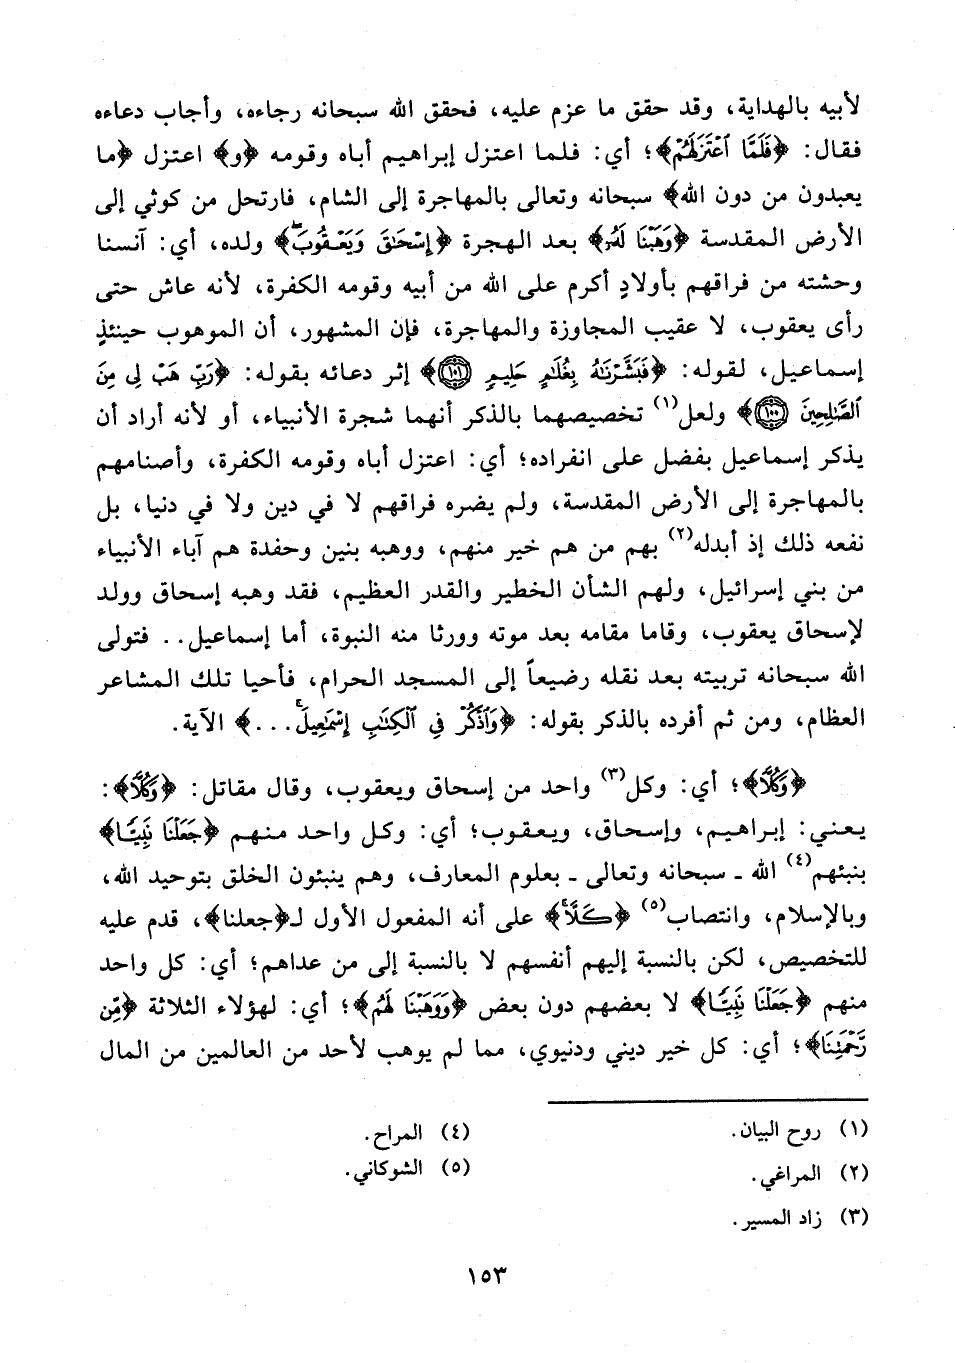 لأبيه بالهداية، وقد حقق ما عزم عليه، فحقق الله سبحانه رجاءه، وأجاب دعاءه
فقال: ﴿فَلَمَّا ٱعْتَزَلَهُمْ﴾؛ أي: فلما اعتزل إبراهيم أباه وقومه ﴿و﴾ اعتزل ﴿ما
يعبدون من دون الله﴾ سبحانه وتعالى بالمهاجرة إلى الشام، فارتحل من كوثي إلى
الأرض المقدسة ﴿وَهَبْنَا لَهُۥ﴾ بعد الهجرة ﴿إِسْحَٰقَ وَيَعْقُوبَۖ﴾ ولده، أي: آنسنا
وحشته من فراقهم بأولادٍ أكرم على الله من أبيه وقومه الكفرة، لأنه عاش حتى
رأى يعقوب، لا عقيب المجاوزة والمهاجرة، فإن المشهور، أن الموهوب حينئذٍ
إسماعيل، لقوله: ﴿فَبَشَّرْنَٰهُ بِغُلَٰمٍ حَلِيمٍ ١٠١﴾ إثر دعائه بقوله: ﴿رَبِّ هَبْ لِى مِنَ
ٱلصَّٰلِحِينَ ١٠٠﴾ ولعل(١) تخصيصهما بالذكر أنهما شجرة الأنبياء، أو لأنه أراد أن
يذكر إسماعيل بفضل على انفراده؛ أي: اعتزل أباه وقومه الكفرة، وأصنامهم
بالمهاجرة إلى الأرض المقدسة، ولم يضره فراقهم لا في دين ولا في دنيا، بل
نفعه ذلك إذ أبدله(٢) بهم من هم خير منهم، ووهبه بنين وحفدة هم آباء الأنبياء
من بني إسرائيل، ولهم الشأن الخطير والقدر العظيم، فقد وهبه إسحاق وولد
لإسحاق يعقوب، وقاما مقامه بعد موته وورثا منه النبوة، أما إسماعيل.. فتولى
الله سبحانه تربيته بعد نقله رضيعاً إلى المسجد الحرام، فأحيا تلك المشاعر
العظام، ومن ثم أفرده بالذكر بقوله: ﴿وَٱذْكُرْ فِى ٱلْكِتَٰبِ إِسْمَٰعِيلَۚ...﴾ الآية.
﴿وَكُلًّا﴾؛ أي: وكل(٣) واحد من إسحاق ويعقوب، وقال مقاتل: ﴿وَكُلًّا﴾:
يعني: إبراهيم، وإسحاق، ويعقوب؛ أي: وكل واحد منهم ﴿جَعَلْنَا نَبِيًّا﴾
ينبئهم(٤) الله ـ سبحانه وتعالى ـ بعلوم المعارف، وهم ينبئون الخلق بتوحيد الله،
وبالإسلام، وانتصاب(٥) ﴿كَلَّاۚ﴾ على أنه المفعول الأول لـ﴿جعلنا﴾، قدم عليه
للتخصيص، لكن بالنسبة إليهم أنفسهم لا بالنسبة إلى من عداهم؛ أي: كل واحد
منهم ﴿جَعَلْنَا نَبِيًّا﴾ لا بعضهم دون بعض ﴿وَوَهَبْنَا لَهُم﴾؛ أي: لهؤلاء الثلاثة ﴿مِّن
رَّحْمَتِنَا﴾؛ أي: كل خير ديني ودنيوي، مما لم يوهب لأحد من العالمين من المال
(١) روح البيان.
(٢) المراغي.
(٣) زاد المسير.
(٤) المراح.
(٥) الشوكاني.
١٥٣